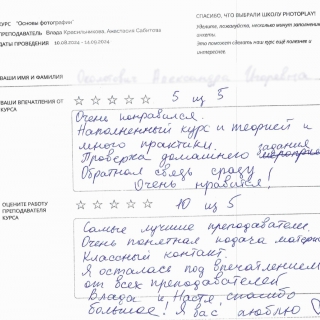 КУРС "Основы фотографии"
ПРЕПОДАВАТЕЛЬ Влада Красильникова, Анастасия Сабитова
ДАТЫ ПРОВЕДЕНИЯ 10.08.2024 - 14.09.2024
СПАСИБО, ЧТО ВЫБРАЛИ ШКОЛУ PHOTOPLAY!
Уделите, пожалуйста, несколько минут заполнению
анкеты.
Это поможет сделать наш курс ещё полезнее и
интереснее.
ВАШИ ИМЯ И ФАМИЛИЯ Александра Игоревна
ВАШИ ВПЕЧАТЛЕНИЯ ОТ
КУРСА
5 из 5
Очень понравился.
Наполненный курс и теорией и
много практики.
Проверка домашнего задания
Обратная связь сразу
Очень нравится!
ОЦЕНИТЕ РАБОТУ
ПРЕПОДАВАТЕЛЯ
КУРСА
10 из 5
Самые лучшие преподаватели.
Очень понятная подача матери
Классный контакт.
Я осталась под впечатлением
от всех преподавателей
Влада и Настя, спасибо
большое! Я вас люблю